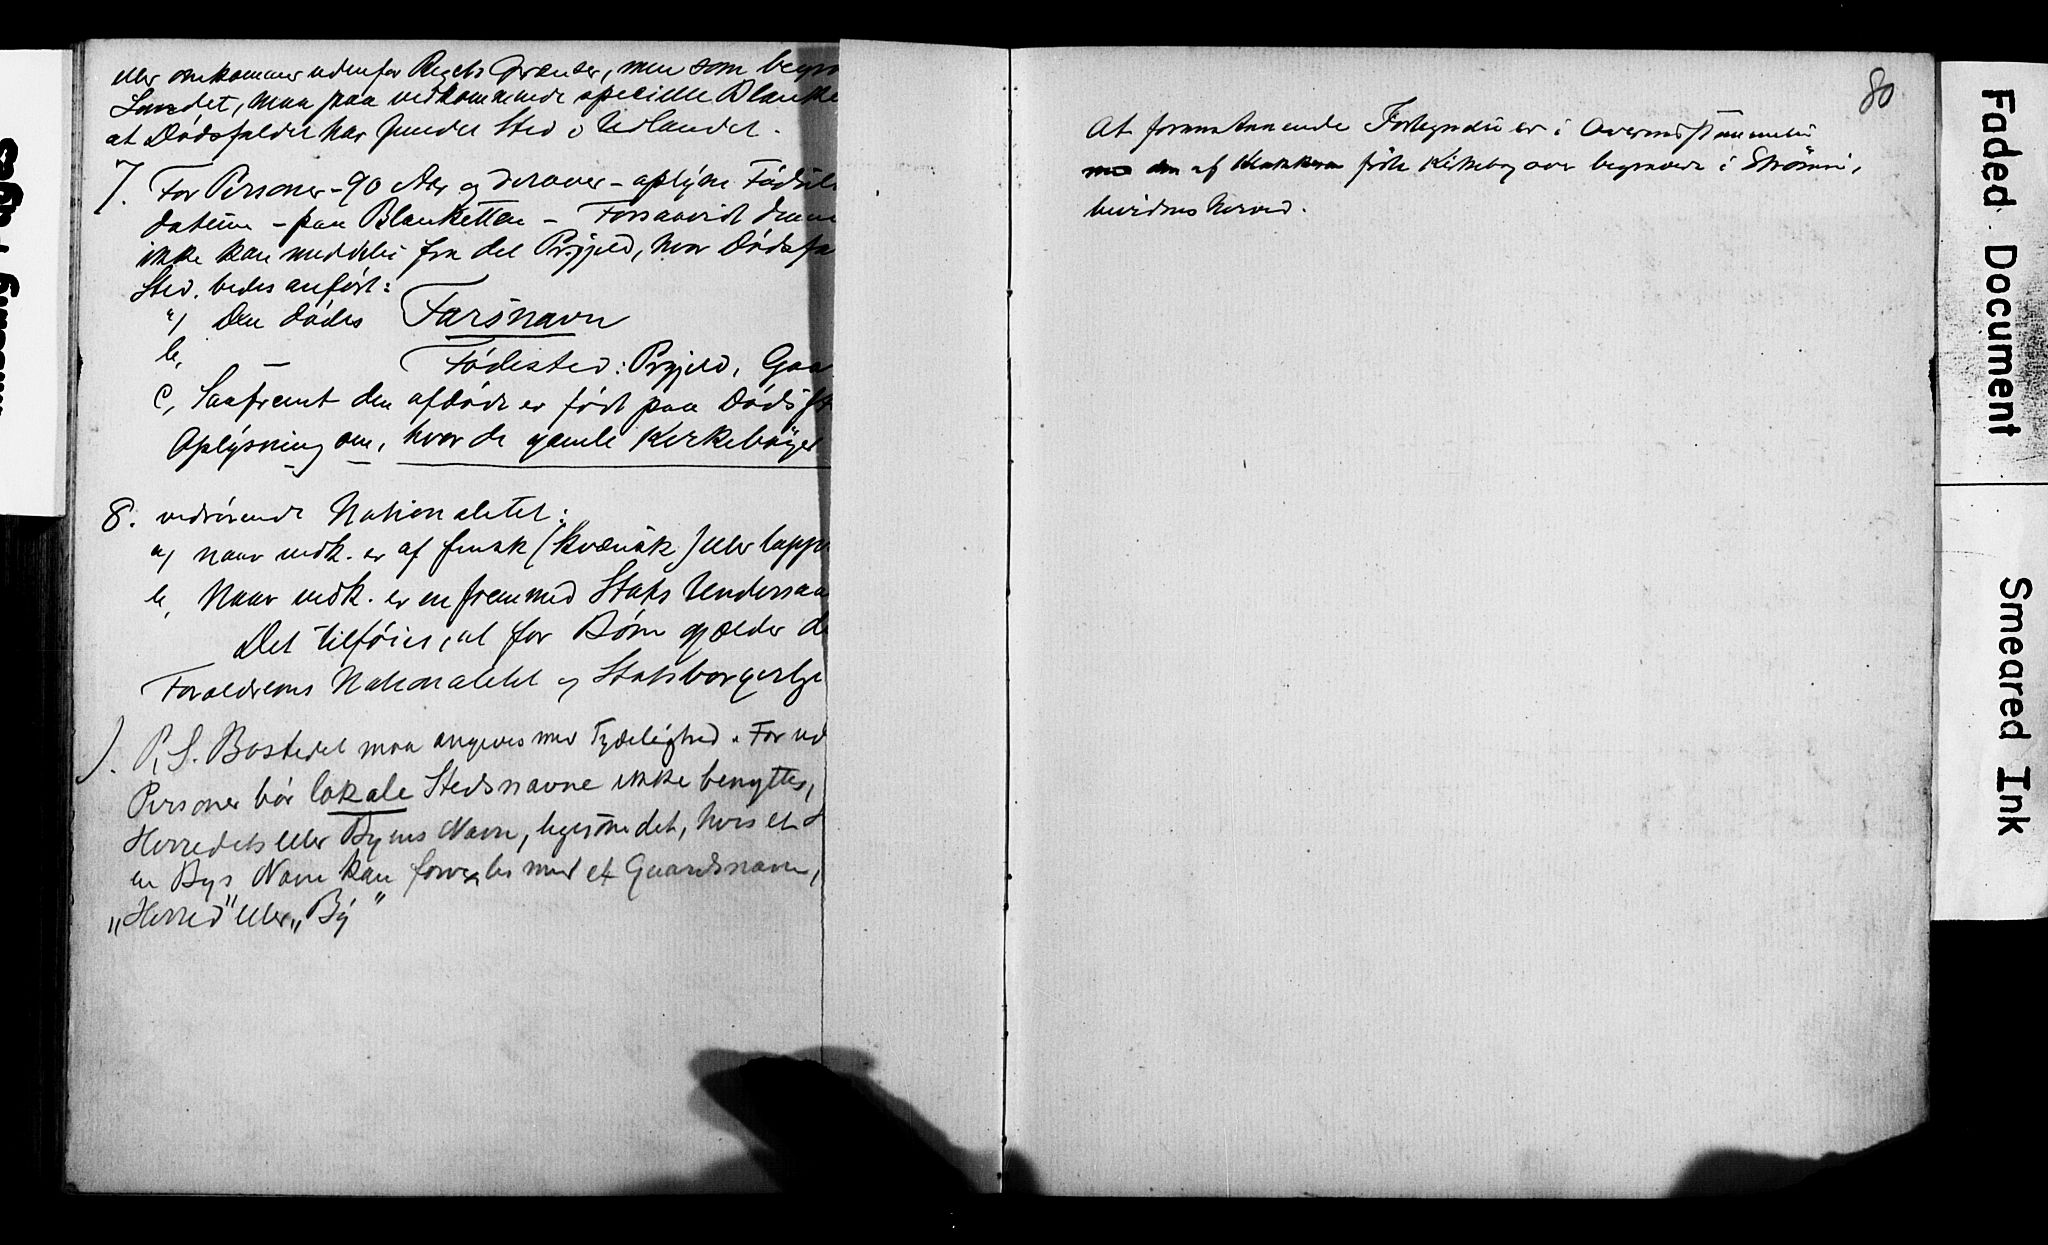 eller omkommer udenfor Rigets Grænser, men som begra
Landet, maa paa vedkommende specielle Blanke
at Dødsfaldet har fundet Sted i Udlandet.
7. For Personer - 90 Aar og derover - oplyses Fødsels
datum - paa Blanketten - Forsaavidt denne
ikke kan meddeles fra det Prgjeld, hvor Dødsfa
Sted, bedes anført:
a) Den dødes Farsnavn
b, — Fødested: Prgjeld, Gaa
c, Saafremt den afdøde er født paa Dødsst
Oplysning om, hvor de gamle Kirkebøger
8. vedrørende Nationalitet:
a) naar vedk. er af finsk (kvænsk) eller lapp
b, Naar vedk. er en fremmed Stats Undersaa
Det tilføies, at for Børn gjælder de
Forældrenes Nationalitet og Statsborgerlige
). P.S. Bostedet maa angives med Tydelighed. For ud
Personer bør lokale Stedsnavne ikke benyttes,
Herredets eller Byens Navn, ligesom det, hvis et
en Bys Navn kan forvexles med et Gaardsnavn,
„Herred" eller „By"
80
At foranstaaende Fortegnelse er i Overensstemmelse
af førte Kirkebog over begravede i Strømm,
bevidnes herved.
Faded Document
Smeared Ink